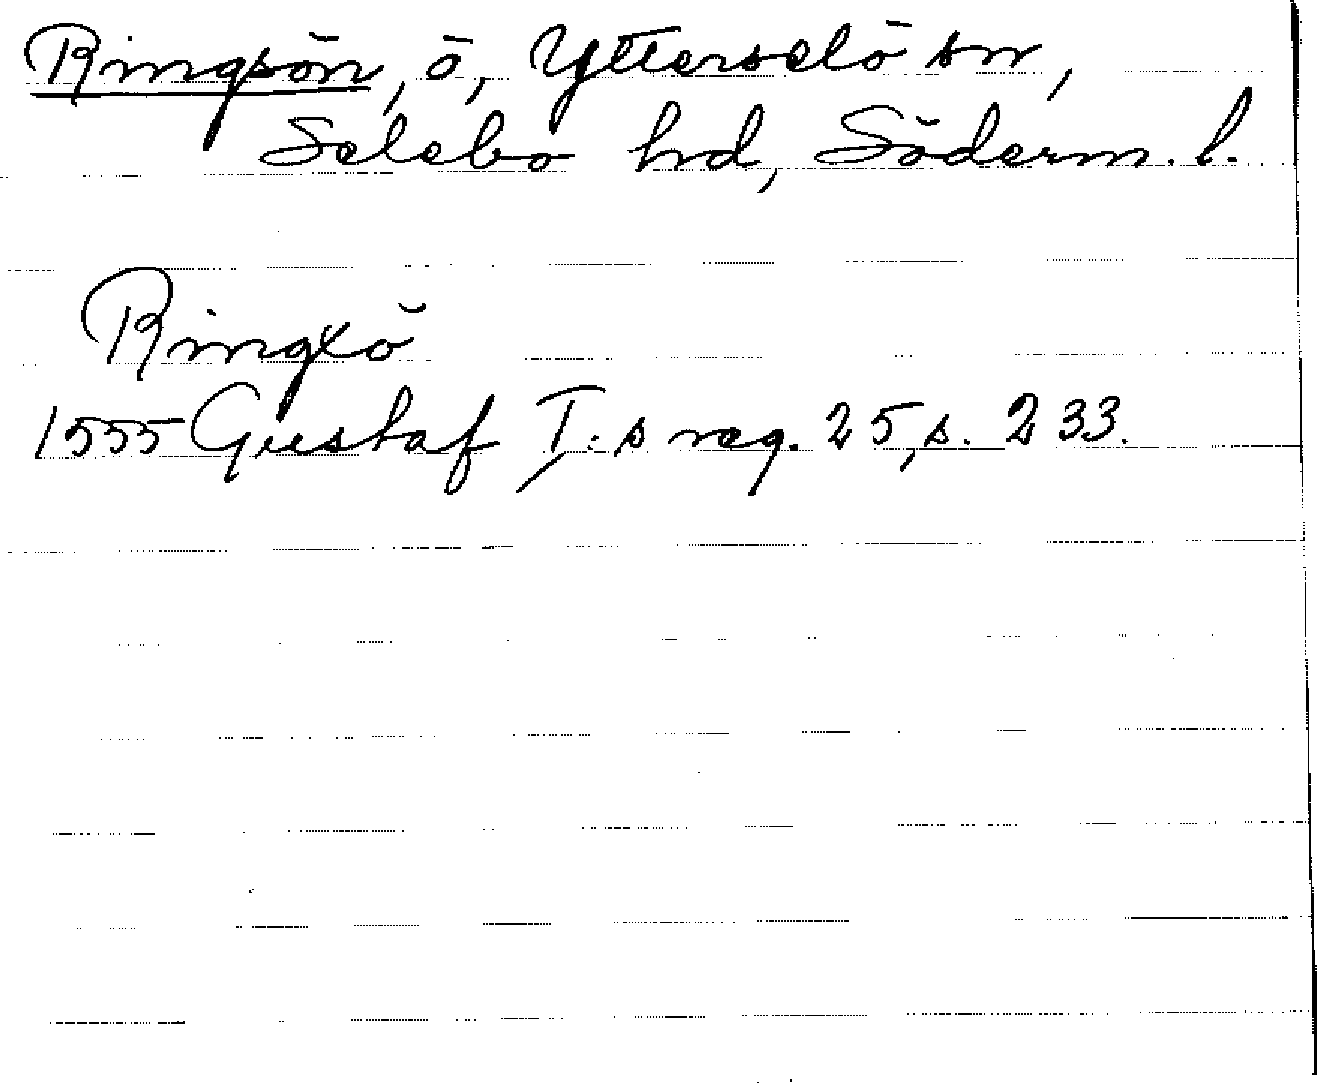 Ringsön, ö, Ytterselö sn,
Selebo hd, Söderm. l.
Ringxö
1555 Gustaf I:s reg. 25, s. 233.